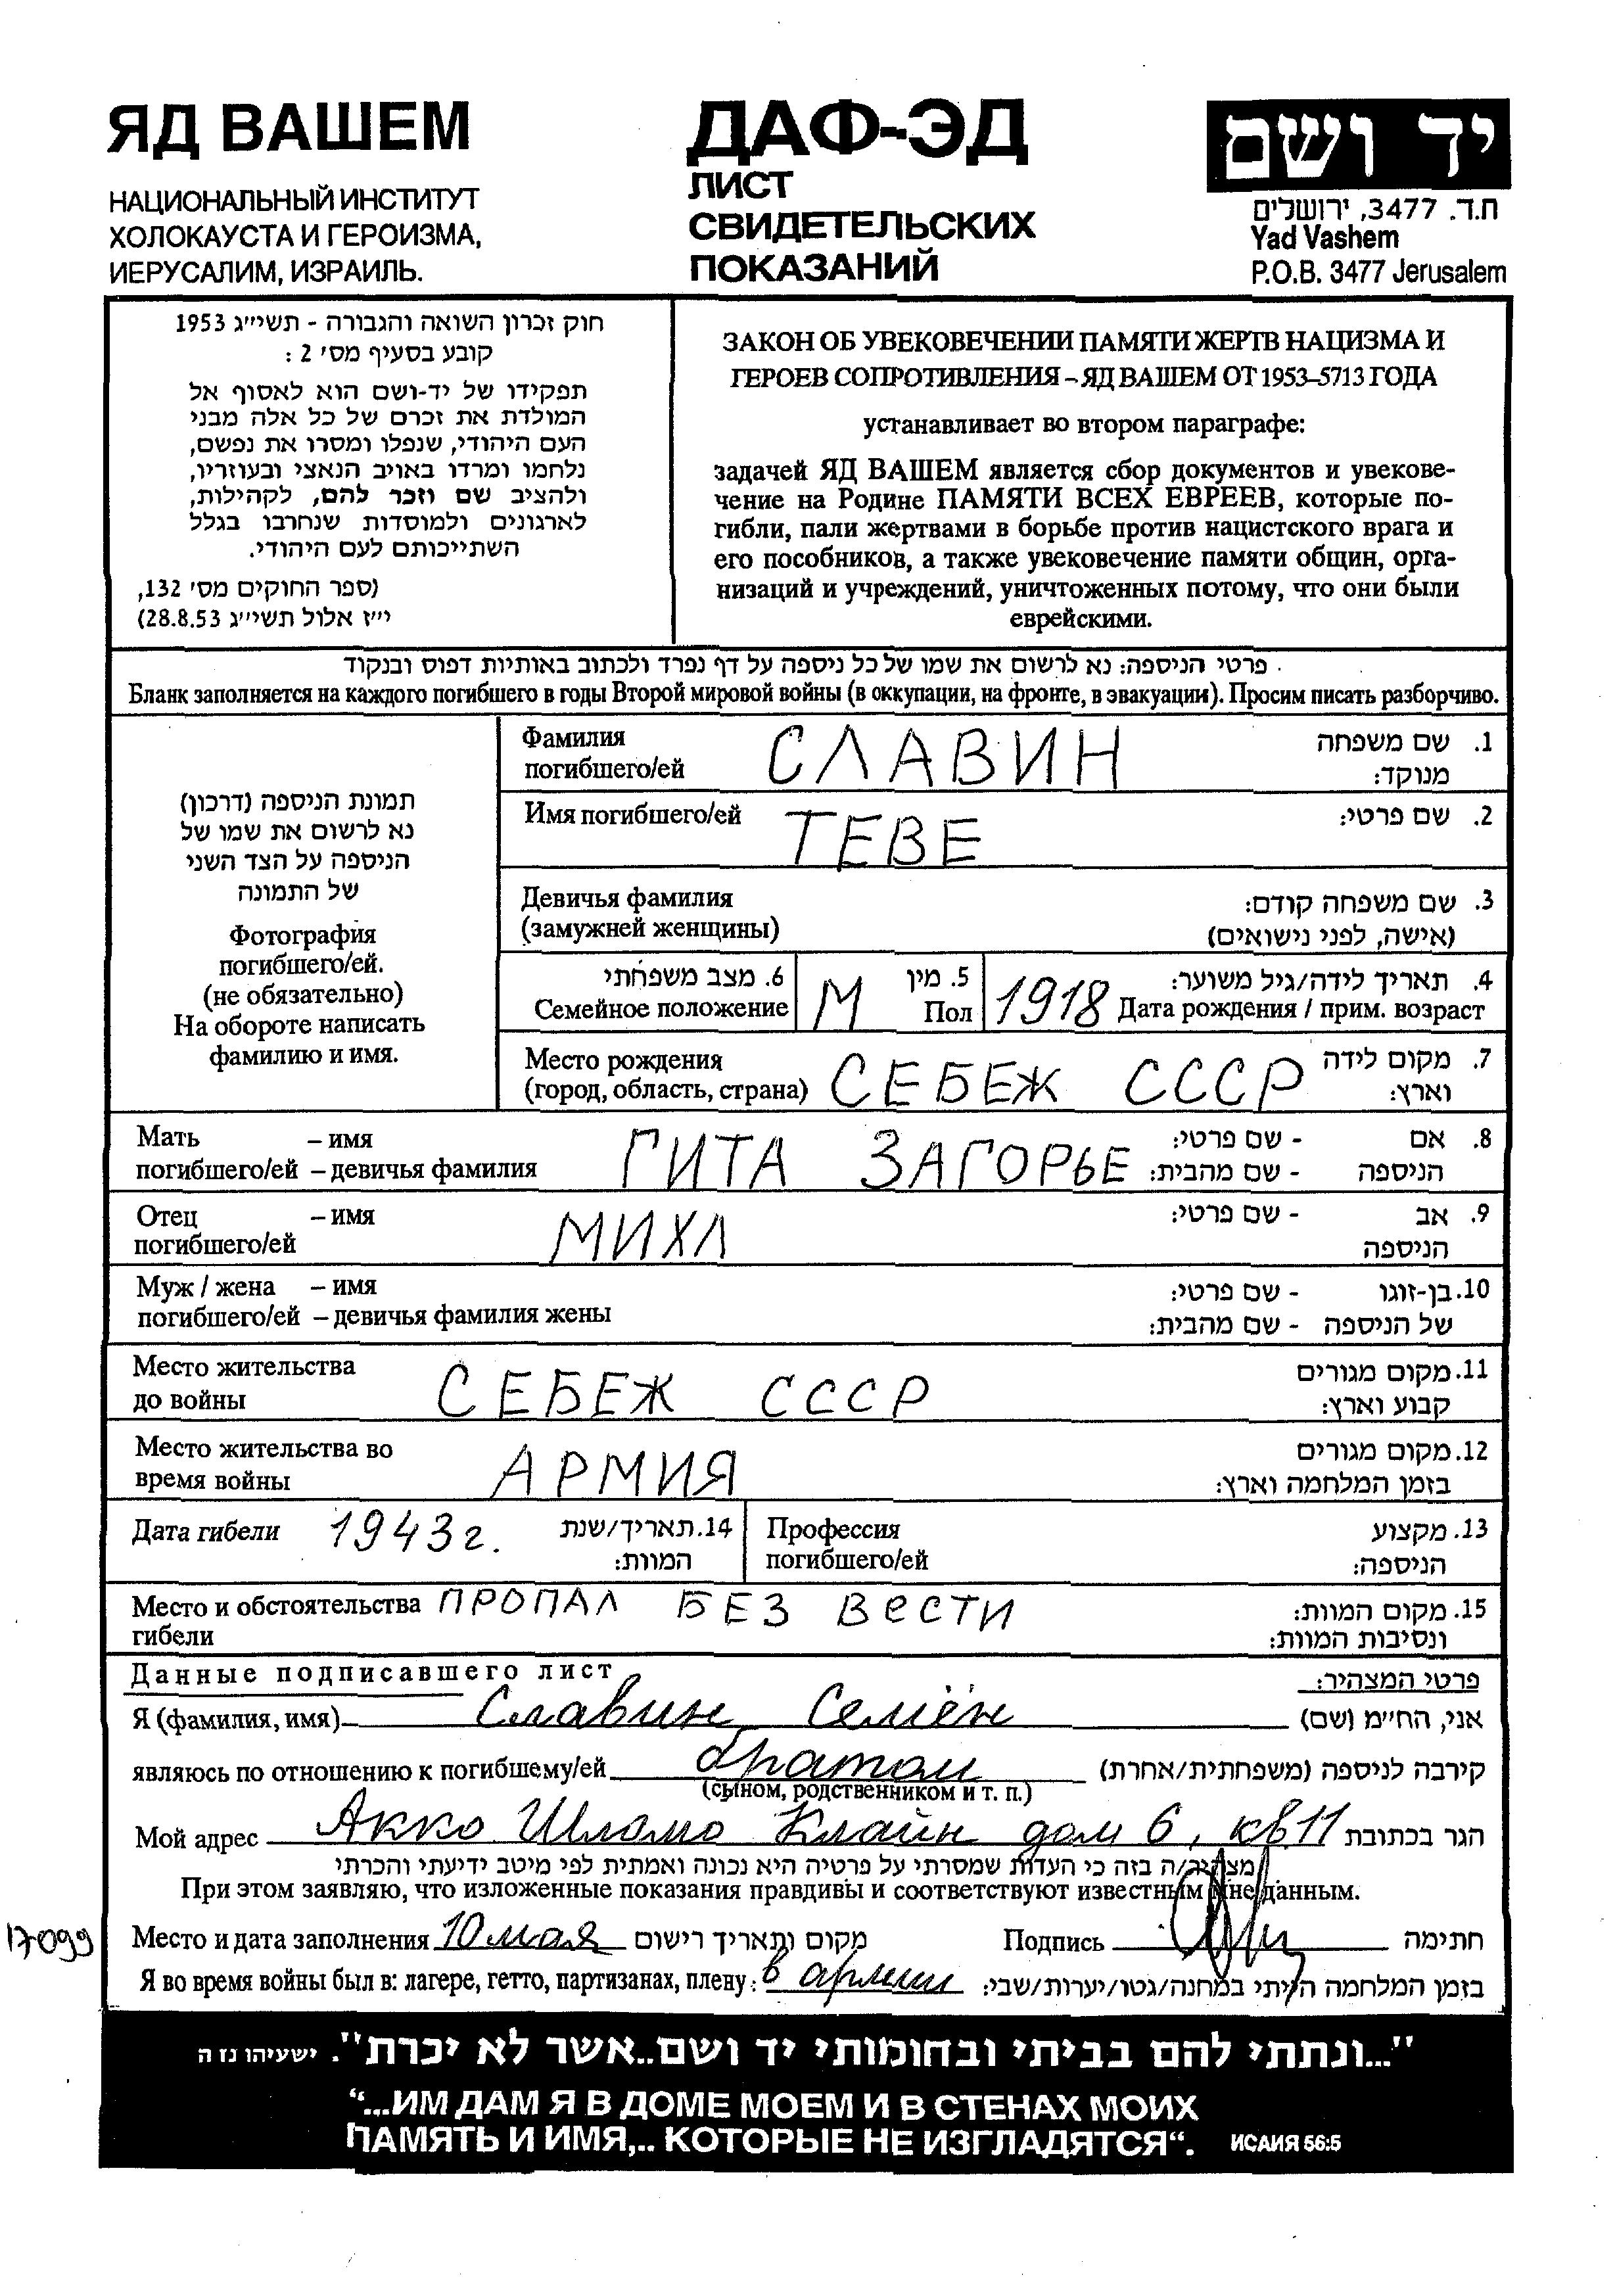 ЯД ВАШЕМ
НАЦИОНАЛЬНЫЙ ИНСТИТУТ
ХОЛОКАУСТА И ГЕРОИЗМА,
ИЕРУСАЛИМ, ИЗРАИЛЬ.
ДАФ-ЭД
ЛИСТ
СВИДЕТЕЛЬСКИХ
ПОКАЗАНИЙ
יד ושם
ת.ד. 3477, ירושלים
Yad Vashem
P.O.B. 3477 Jerusalem
חוק זכרון השואה והגבורה - תשי״ג 1953
קובע בסעיף מס׳ 2 :
תפקידו של יד-ושם הוא לאסוף אל
המולדת את זכרם של כל אלה מבני
העם היהודי, שנפלו ומסרו את נפשם,
נלחמו ומרדו באויב הנאצי ובעוזריו,
ולהציב שם וזכר להם, לקהילות,
לארגונים ולמוסדות שנחרבו בגלל
השתייכותם לעם היהודי.
(ספר החוקים מס׳ 132,
י״ז אלול תשי״ג 28.8.53)
ЗАКОН ОБ УВЕКОВЕЧЕНИИ ПАМЯТИ ЖЕРТВ НАЦИЗМА И
ГЕРОЕВ СОПРОТИВЛЕНИЯ – ЯД ВАШЕМ ОТ 1953–5713 ГОДА
устанавливает во втором параграфе:
задачей ЯД ВАШЕМ является сбор документов и увекове-
чение на Родине ПАМЯТИ ВСЕХ ЕВРЕЕВ, которые по-
гибли, пали жертвами в борьбе против нацистского врага и
его пособников, а также увековечение памяти общин, орга-
низаций и учреждений, уничтоженных потому, что они были
еврейскими.
פרטי הניספה: נא לרשום את שמו של כל ניספה על דף נפרד ולכתוב באותיות דפוס ובנקוד
Бланк заполняется на каждого погибшего в годы Второй мировой войны (в оккупации, на фронте, в эвакуации). Просим писать разборчиво.
תמונת הניספה (דרכון)
נא לרשום את שמו של
הניספה על הצד השני
של התמונה
Фотография
погибшего/ей.
(не обязательно)
На обороте написать
фамилию и имя.
Фамилия СЛАВИН 1. שם משפחה
погибшего/ей מנוקד:
Имя погибшего/ей ТЕВЕ 2. שם פרטי:
Девичья фамилия 3. שם משפחה קודם:
(замужней женщины) (אישה, לפני נישואים)
6. מצב משפחתי 5. מין 4. תאריך לידה/גיל משוער:
Семейное положение М Пол 1918 Дата рождения / прим. возраст
Место рождения 7. מקום לידה
(город, область, страна) СЕБЕЖ СССР וארץ:
Мать – имя ГИТА ЗАГОРЬЕ 8. אם - שם פרטי:
погибшего/ей – девичья фамилия הניספה - שם מהבית:
Отец – имя МИХЛ 9. אב - שם פרטי:
погибшего/ей הניספה
Муж / жена – имя 10. בן-זוגו - שם פרטי:
погибшего/ей – девичья фамилия жены של הניספה - שם מהבית:
Место жительства 11. מקום מגורים
до войны СЕБЕЖ СССР קבוע וארץ:
Место жительства во 12. מקום מגורים
время войны АРМИЯ בזמן המלחמה וארץ:
Дата гибели 1943 г. 14. תאריך/שנת Профессия 13. מקצוע
המוות: погибшего/ей הניספה:
Место и обстоятельства ПРОПАЛ БЕЗ ВЕСТИ 15. מקום המוות:
гибели ונסיבות המוות:
Данные подписавшего лист פרטי המצהיר:
Я (фамилия, имя) Славин Семён אני, החי״מ (שם)
являюсь по отношению к погибшему/ей братом קירבה לניספה (משפחתית/אחרת)
(сыном, родственником и т. п.)
Мой адрес Акко Шломо Клайн дом 6, кв 11 הגר בכתובת
מצהיר/ה בזה כי העדות שמסרתי על פרטיה היא נכונה ואמתית לפי מיטב ידיעתי והכרתי
При этом заявляю, что изложенные показания правдивы и соответствуют известным мне данным.
17099
Место и дата заполнения 10 мая מקום ותאריך רישום Подпись חתימה
Я во время войны был в: лагере, гетто, партизанах, плену: в армии בזמן המלחמה הייתי במחנה/גטו/יערות/שבי:
"...ונתתי להם בביתי ובחומותי יד ושם..אשר לא יכרת". ישעיהו נז ה
“...ИМ ДАМ Я В ДОМЕ МОЕМ И В СТЕНАХ МОИХ
ПАМЯТЬ И ИМЯ,.. КОТОРЫЕ НЕ ИЗГЛАДЯТСЯ“. ИСАИЯ 56:5